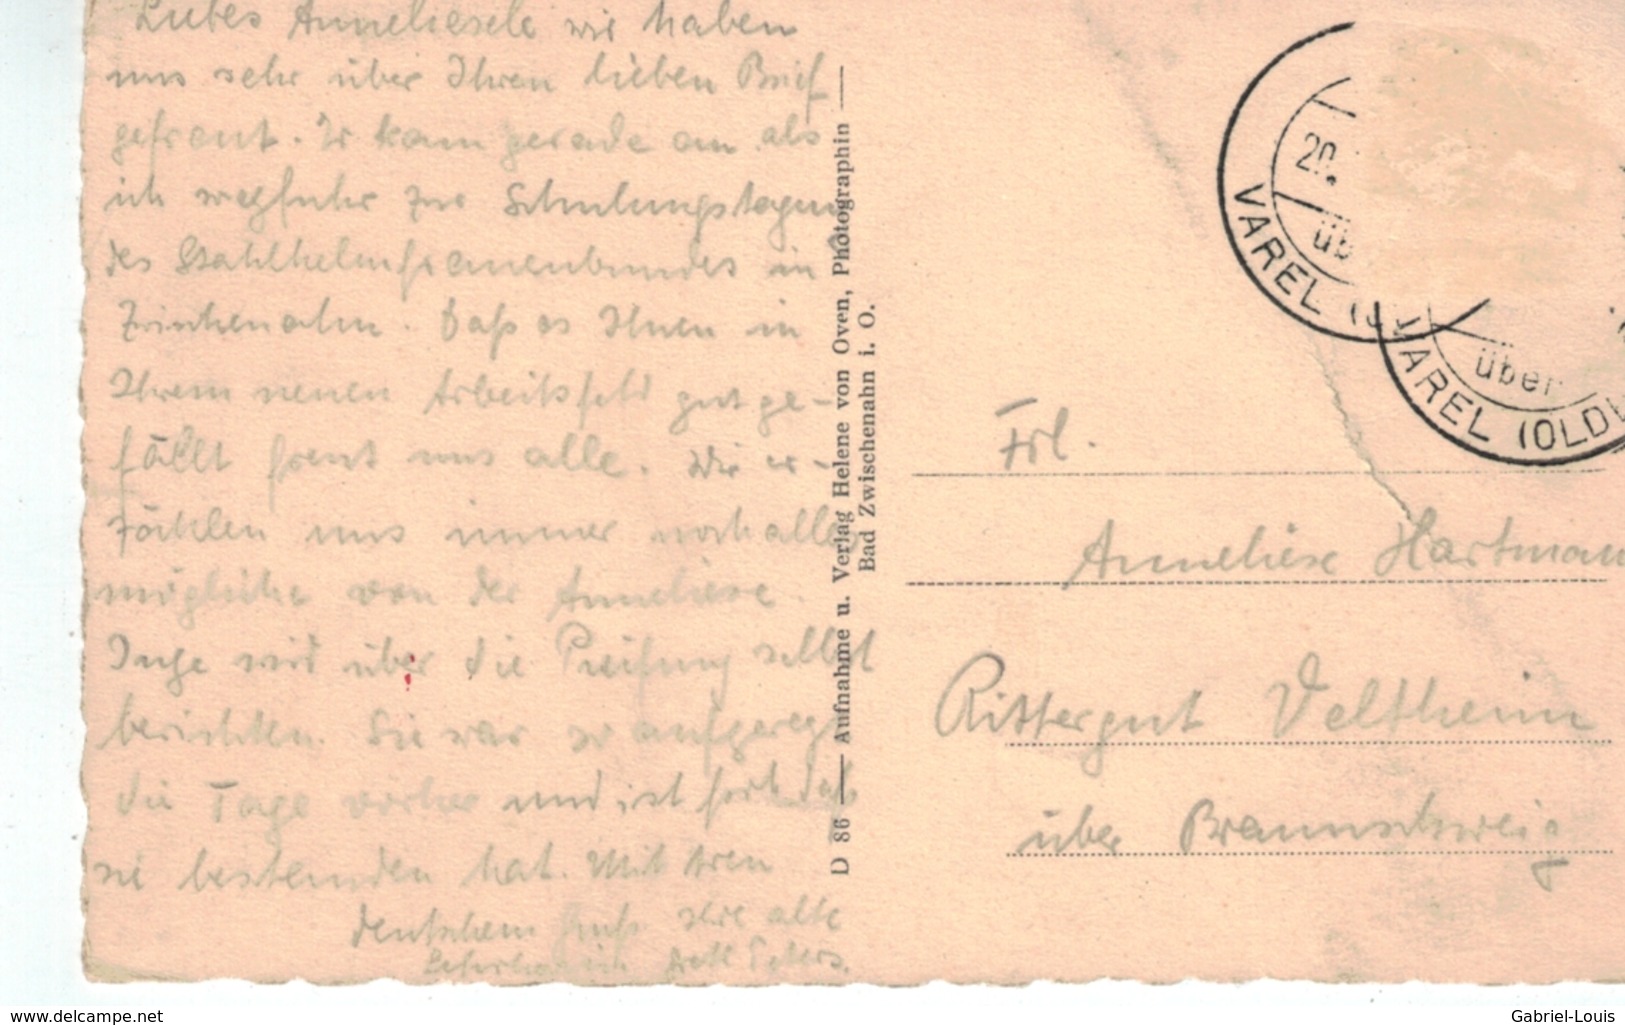 Liebes Anneliesele wir haben
uns sehr über Ihren lieben Brief
gefreut. Er kam gerade an als
ich wegfuhr zur Schulungstagung
des Stahlhelmfrauenbundes in
Zwischenahn. Daß es Ihnen in
Ihrem neuen Arbeitsfeld gut ge-
fällt freut uns alle. Wir er-
zählen uns immer noch alles
mögliche von der Anneliese.
Inge wird über die Prüfung selbst
berichten. Sie war so aufgeregt
die Tage vorher und ist froh daß
sie bestanden hat. Mit treu
deutschem Gruß Ihre alte
Peters.
D 86 — Aufnahme u. Verlag Helene von Oven, Photographin —
Bad Zwischenahn i. O.
20.
üb
VAREL (O
über
VAREL (OLDB
Frl.
Anneliese Hartmann
Rittergut Veltheim
über Braunschweig
www.delcampe.net
Gabriel-Louis